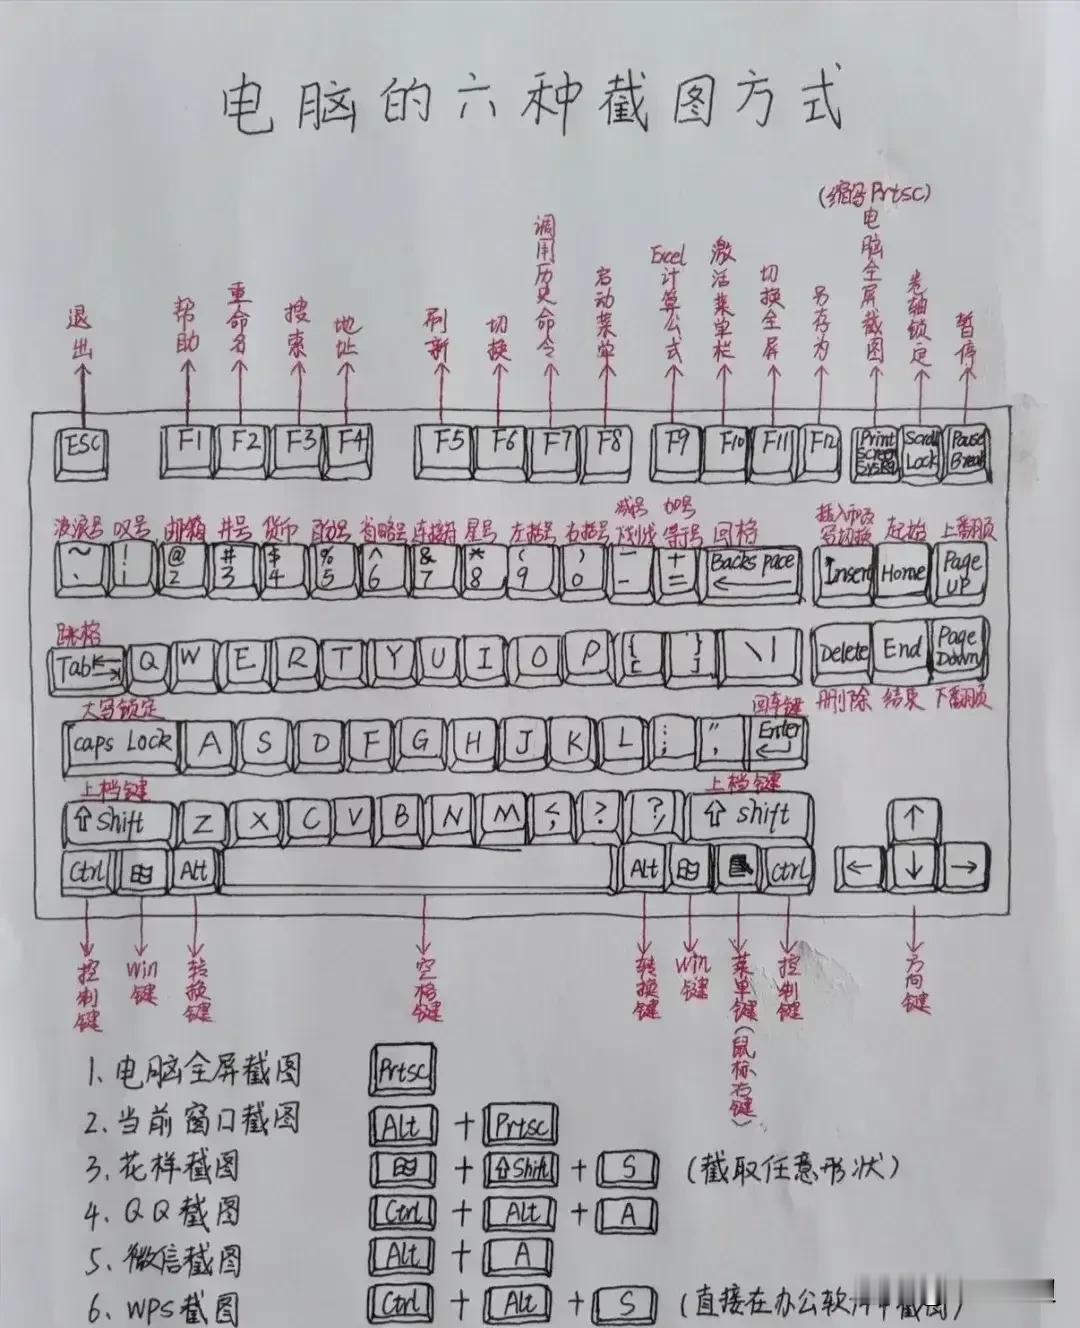 电脑的六种截图方式
(缩写Prtsc)
退出
帮助
重命名
搜索
地址
刷新
切换
调用历史命令
启动菜单
Excel计算公式
激活菜单栏
切换全屏
另存为
电脑全屏截图
卷轴锁定
暂停
ESC F1 F2 F3 F4 F5 F6 F7 F8 F9 F10 F11 F12 Print Screen SysRq Scroll Lock Pause Break
波浪号 叹号 邮箱 井号 货币 百分号 省略号 连接符 星号 左括号 右括号 减号 下划线 加号 等号 回格 起始 上翻页
~ ! @ # $ % ^ & * ( ) — +
2 3 4 5 6 7 8 9 0 - = Backspace Insert Home Page UP
跳格
Tab Q W E R T Y U I O P { [ } ] \ | Delete End Page Down
大写锁定 回车键 删除 结束 下翻页
caps Lock A S D F G H J K L : ; " , Enter
上档键 上档键
⇧ Shift Z X C V B N M < , ? ? / ⇧ shift ↑
Ctrl Alt Alt Ctrl ← ↓ →
控制键
Win键
转换键
空格键
转换键
Win键
菜单键(鼠标右键)
控制键
方向键
1、电脑全屏截图 Prtsc
2、当前窗口截图 Alt + Prtsc
3、花样截图 + ⇧Shift + S (截取任意形状)
4、QQ截图 Ctrl + Alt + A
5、微信截图 Alt + A
6、WPS截图 Ctrl + Alt + S (直接在办公软件中截图)